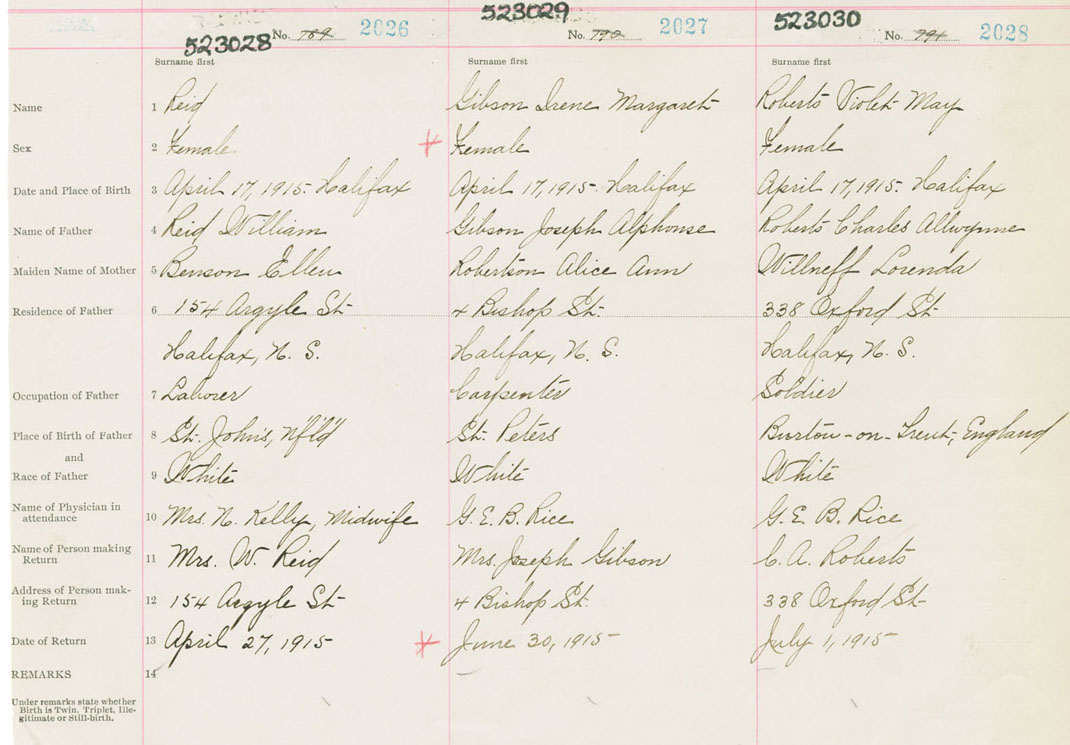 523028 No. 789 2026 523029 No. 790 2027 523030 No. 791 2028
Surname first Surname first Surname first
Name 1 Reid Gibson Irene Margaret Roberts Violet May
Sex 2 Female Female Female
Date and Place of Birth 3 April 17, 1915- Halifax April 17, 1915- Halifax April 17, 1915- Halifax
Name of Father 4 Reid William Gibson Joseph Alphonse Roberts Charles Allwynne
Maiden Name of Mother 5 Benson Ellen Robertson Alice Ann Willneff Lorenda
Residence of Father 6 154 Argyle St. 4 Bishop St. 338 Oxford St.
Halifax, N. S. Halifax, N. S. Halifax, N. S.
Occupation of Father 7 Laborer Carpenter Soldier
Place of Birth of Father 8 St. John's, N'f'l'd' St. Peters Burton-on-Trent, England
and
Race of Father 9 White White White
Name of Physician in
attendance 10 Mrs. N. Kelly, Midwife G. E. B. Rice G. E. B. Rice
Name of Person making
Return 11 Mrs. W. Reid Mrs. Joseph Gibson C. A. Roberts
Address of Person mak-
ing Return 12 154 Argyle St. 4 Bishop St. 338 Oxford St.
Date of Return 13 April 27, 1915 June 30, 1915 July 1, 1915
REMARKS 14
Under remarks state whether
Birth is Twin, Triplet, Ille-
gitimate or Still-birth.